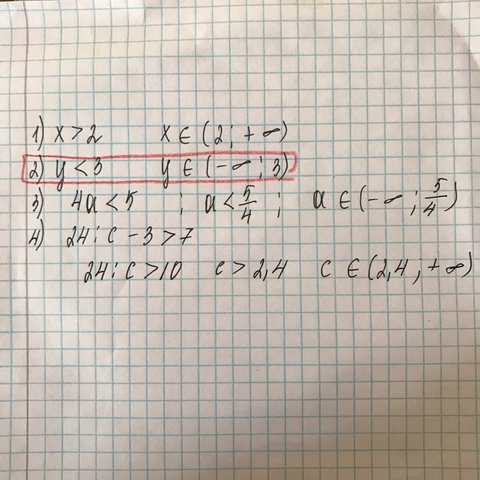 1) x > 2 x ∈ (2; +∞)
2) y < 3 y ∈ (-∞; 3)
3) 4a < 5 ; a < 5/4 ; a ∈ (-∞; 5/4)
4) 24 : c - 3 > 7
24 : c > 10 c > 2,4 c ∈ (2,4; +∞)